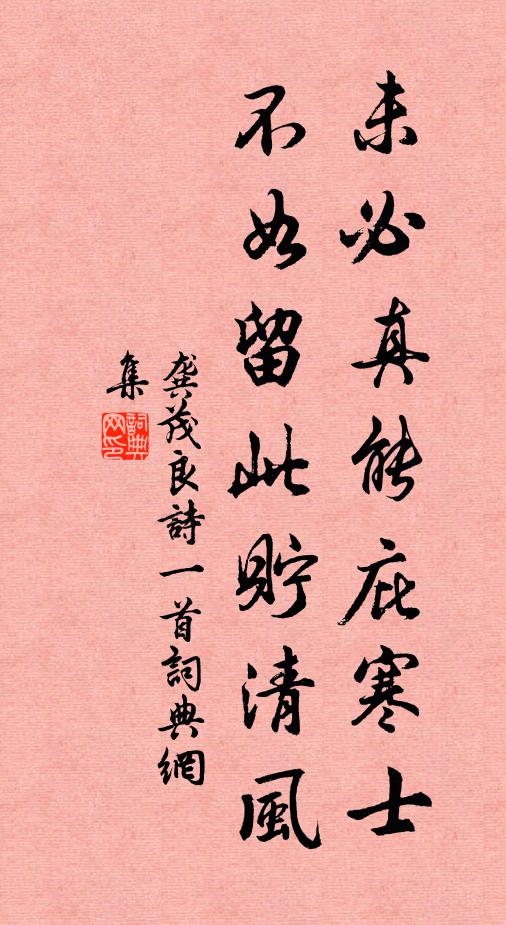 未必真能庇寒士
不如留此貯清風
龔茂良詩一首詞典網
集
詞典網印